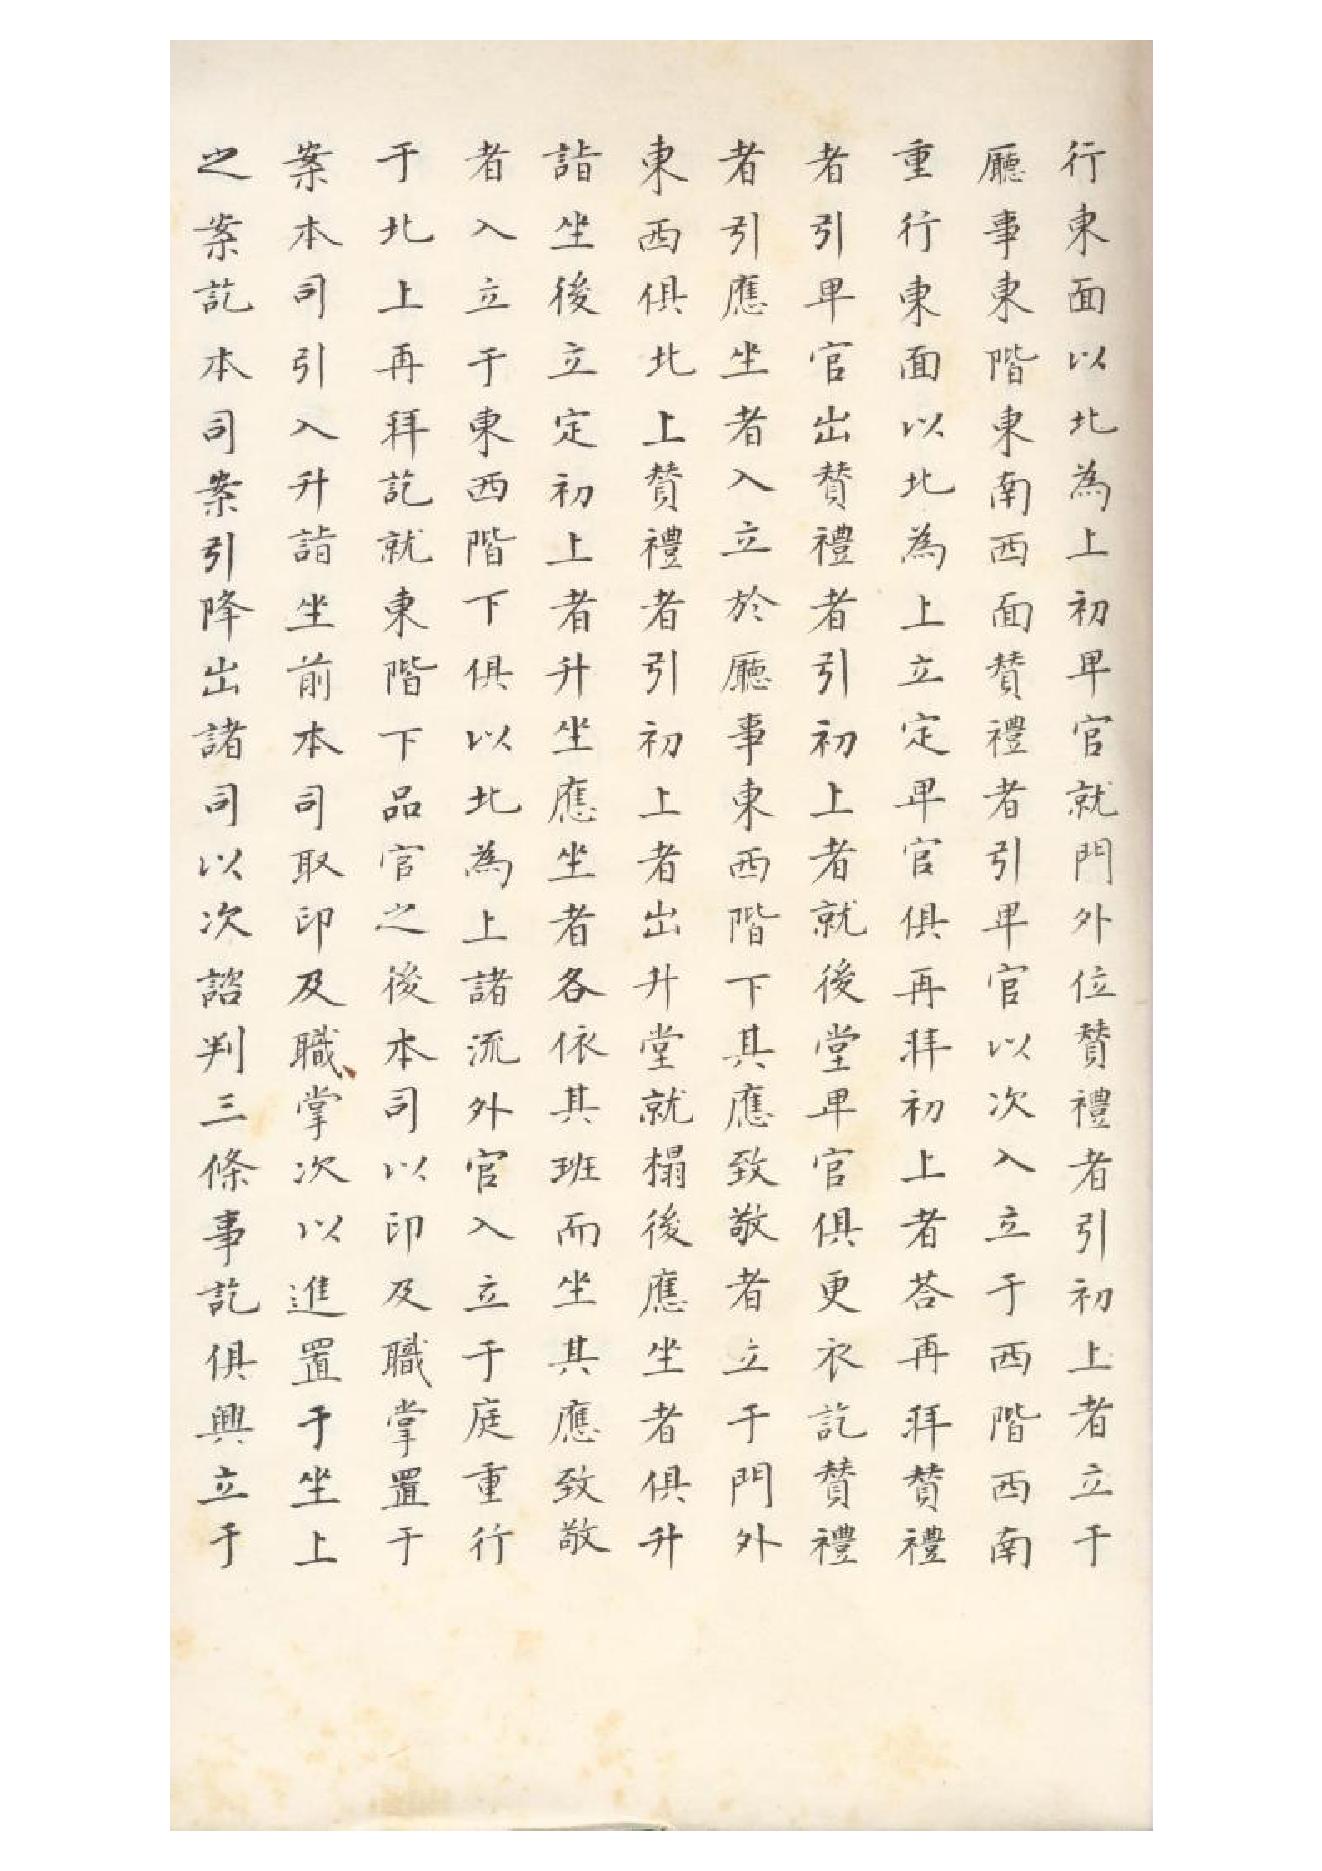 行東面以北為上初卑官就門外位贊禮者引初上者立于
廳事東階東南西面贊禮者引卑官以次入立于西階西南
重行東面以北為上立定卑官俱再拜初上者荅再拜贊禮
者引卑官出贊禮者引初上者就後堂卑官俱更衣訖贊禮
者引應坐者入立於廳事東西階下其應致敬者立于門外
東西俱北上贊禮者引初上者出升堂就榻後應坐者俱升
詣坐後立定初上者升坐應坐者各依其班而坐其應致敬
者入立于東西階下俱以北為上諸流外官入立于庭重行
于北上再拜訖就東階下品官之後本司以印及職掌置于
案本司引入升詣坐前本司取印及職掌次以進置于坐上
之案訖本司案引降出諸司以次諮判三條事訖俱興立于